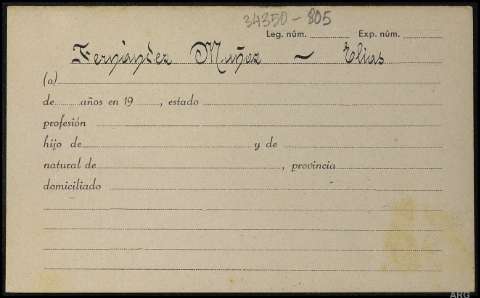 34350-805
Leg. núm. Exp. núm.
Fernández Muñoz - Elias
(a)
de años en 19 , estado
profesión
hijo de y de
natural de , provincia
domiciliado
ARG